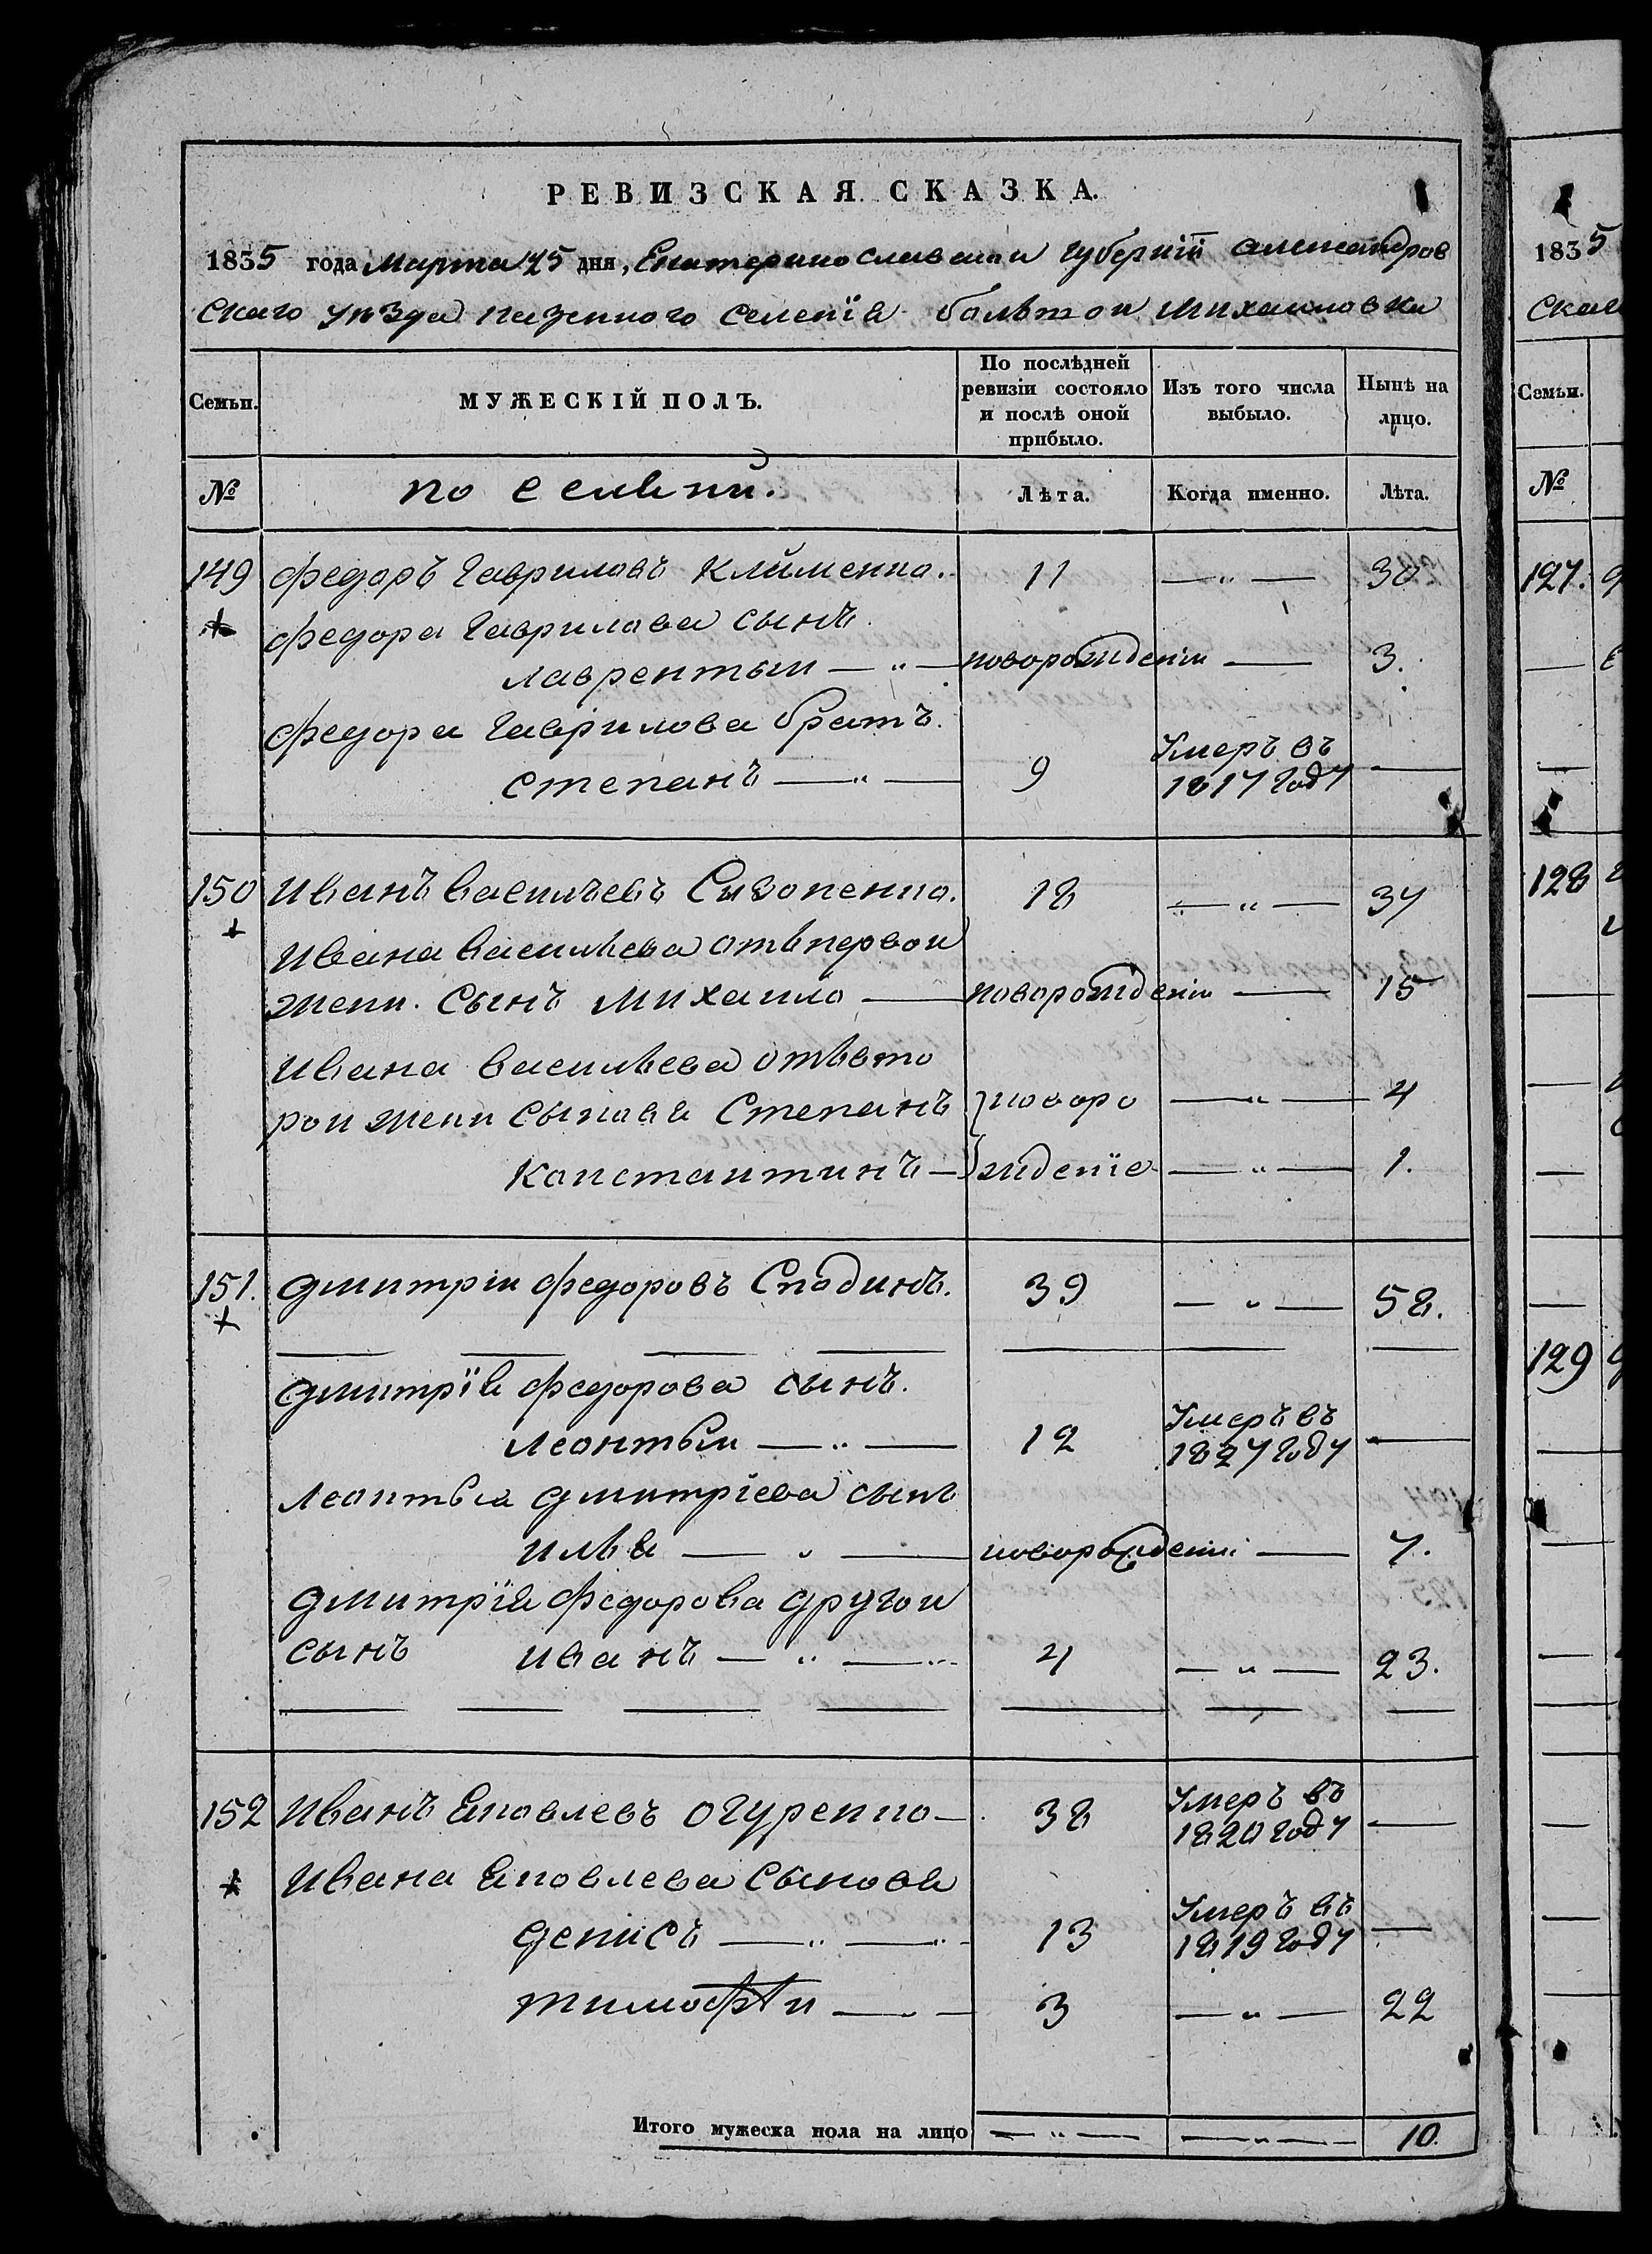 РЕВИЗСКАЯ СКАЗКА.
1835 года Марта 25 дня, Екатеринославской губернии Александров
скаго уѣзда казенного селенія большой Михайловки
Семьи. МУЖЕСКІЙ ПОЛЪ. По послѣдней ревизіи состояло и послѣ оной прибыло. Изъ того числа выбыло. Нынѣ на лицо.
№ Лѣта. Когда именно. Лѣта.
149 Федоръ Гавриловъ Клименко. 11 — „ — 30
Федора Гаврилова сынъ.
Лаврентьи — „ — новорожденіи — 3.
Федора Гаврилова братъ.
Степанъ — „ — 9 Умеръ въ 1817 году —
150 Иванъ Васильевъ Сизоненко. 18 — „ — 37
Ивана Васильева отъ первои
жени. сынъ Михаило — новорожденіи — 15
Ивана Васильева отъ вто
рои жени сыновя Степанъ новоро — „ — 4
Константинъ — жденіе — „ — 1.
151. Дмитріи Федоровъ 39 — „ — 58.
Дмитрія Федорова сынъ.
Леонтьи — „ — 12 Умеръ въ 1827 году —
Леонтья Дмитріева сынъ
Илья — „ — новорожденіи — 7.
Дмитрія Федорова другои
сынъ Иванъ — „ — 4 — „ — 23.
152 Иванъ Яковлевъ Огуренко — 38 Умеръ въ 1820 году —
Ивана Яковлева сыновя
Денисъ — „ — 13 Умеръ въ 1819 году —
Тимофѣи — „ — 3 — „ — 22
Итого мужеска пола на лицо — „ — — „ — 10.
1835
Семьи.
№
127.
128
129